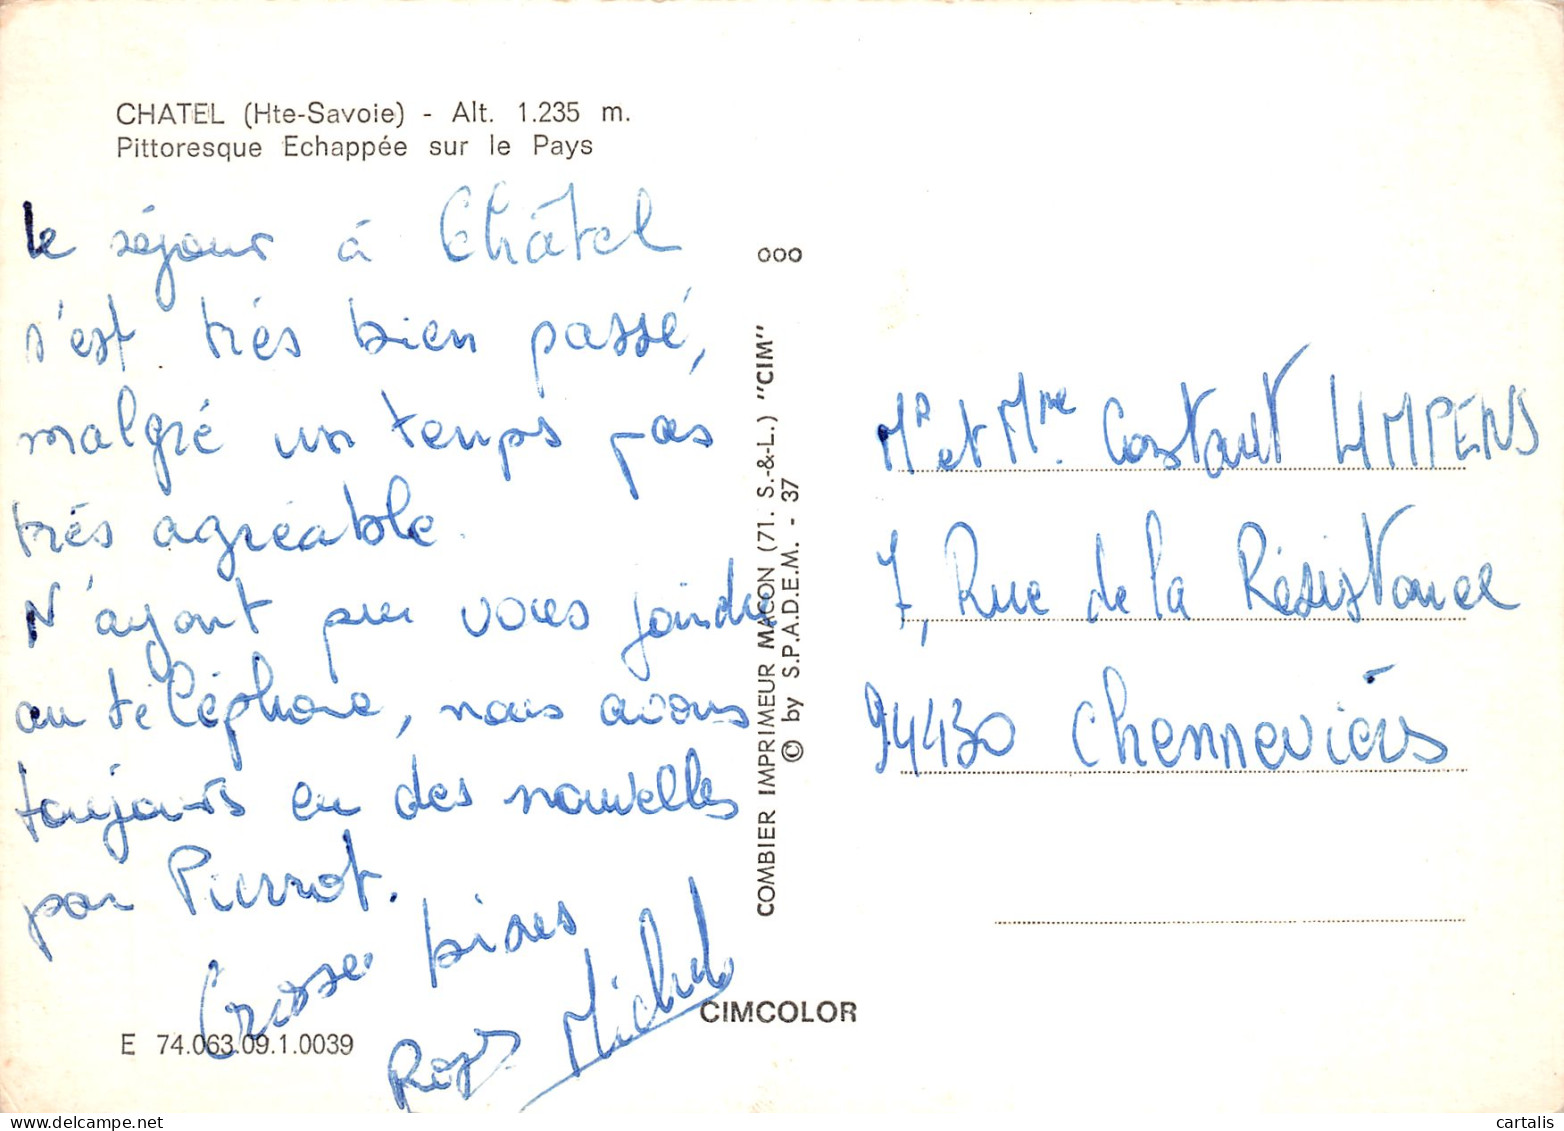 CHATEL (Hte-Savoie) - Alt. 1.235 m.
Pittoresque Echappée sur le Pays
le séjour à Châtel
s'est très bien passé,
malgré un temps pas
très agréable.
N'ayant pu vous joindre
au téléphone, nous avons
toujours eu des nouvelles
par Pierrot.
Grosses bises
Roger Michele
E 74.063.09.1.0039
ooo
COMBIER IMPRIMEUR MACON (71. S.-&-L.) "CIM"
© by S.P.A.D.E.M. - 37
CIMCOLOR
Mr et Mme Constant LIMPENS
7, Rue de la Résistance
94430 Chennevières
cartalis